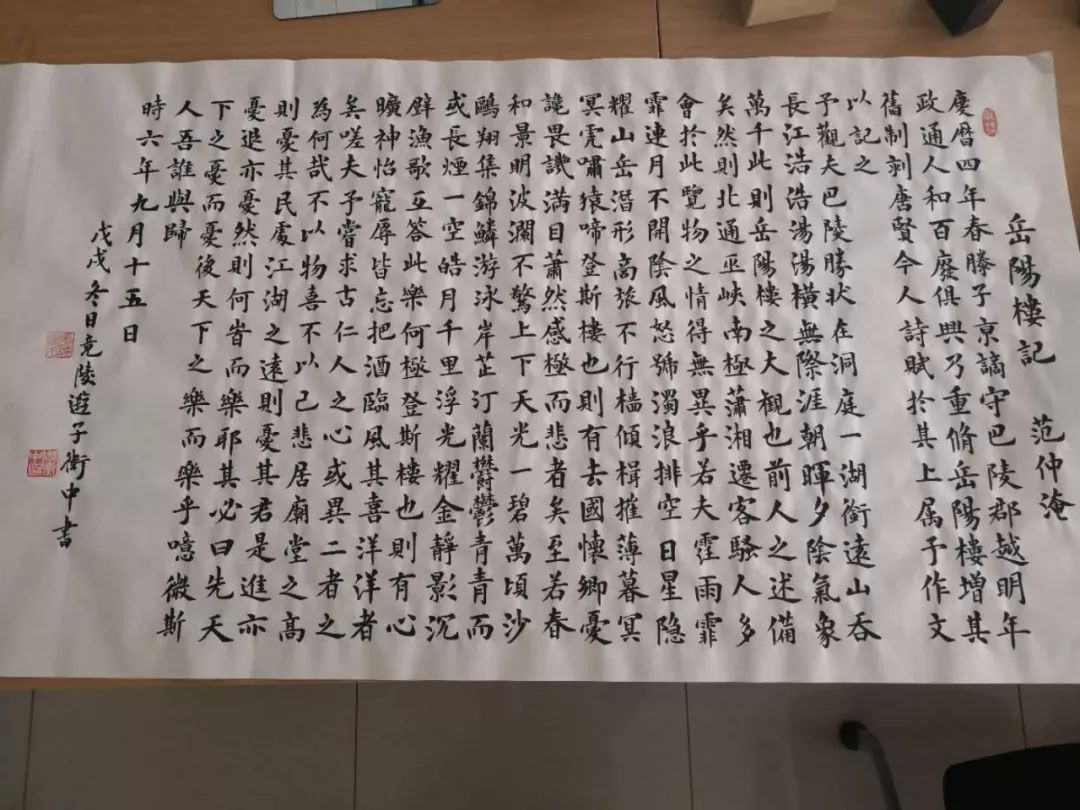 岳陽樓記 范仲淹
慶曆四年春滕子京謫守巴陵郡越明年
政通人和百廢俱興乃重脩岳陽樓增其
舊制刻唐賢今人詩賦於其上属予作文
以記之
予觀夫巴陵勝状在洞庭一湖銜遠山吞
長江浩浩湯湯橫無際涯朝暉夕陰氣象
萬千此則岳陽樓之大觀也前人之述備
矣然則北通巫峽南極瀟湘遷客騷人多
會於此覽物之情得無異乎若夫霪雨霏
霏連月不開陰風怒號濁浪排空日星隐
耀山岳潛形商旅不行檣傾楫摧薄暮冥
冥虎嘯猿啼登斯樓也則有去國懷鄉憂
讒畏譏滿目蕭然感極而悲者矣至若春
和景明波瀾不驚上下天光一碧萬頃沙
鷗翔集錦鱗游泳岸芷汀蘭鬱鬱青青而
或長煙一空皓月千里浮光耀金靜影沉
璧漁歌互答此樂何極登斯樓也則有心
曠神怡寵辱皆忘把酒臨風其喜洋洋者
矣嗟夫予嘗求古仁人之心或異二者之
為何哉不以物喜不以己悲居廟堂之高
則憂其民處江湖之遠則憂其君是進亦
憂退亦憂然則何旹而樂耶其必曰先天
下之憂而憂後天下之樂而樂乎噫微斯
人吾誰與歸
時六年九月十五日
戊戌冬日竟陵遊子衛中書